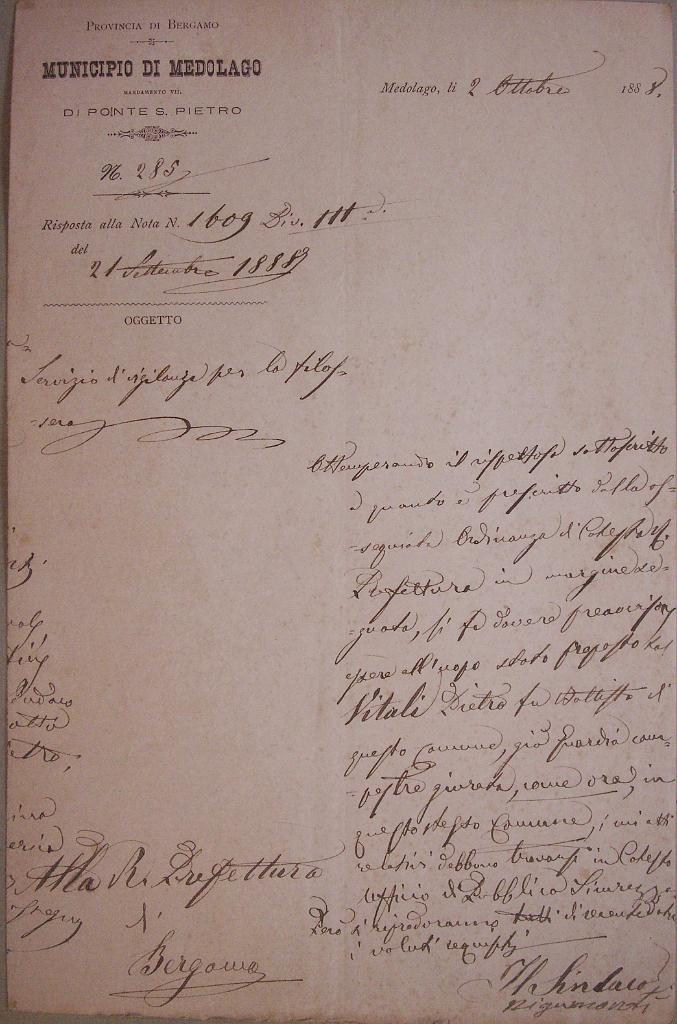 Provincia di Bergamo
MUNICIPIO DI MEDOLAGO
MANDAMENTO VII.
DI PONTE S. PIETRO
N. 285
Medolago, li 2 Ottobre 1888.
Risposta alla Nota N. 1609 Div. III a.
del
21 Settembre 1888
OGGETTO
Servizio di vigilanza per la filos-
-sera
Ottemperando il rispettoso sottoscritto
a quanto è prescritto dalla os-
-sequiata Ordinanza di Codesta R.
Prefettura in margine se-
-gnata, si fa dovere preavvisare
essere all'uopo stato proposto tal
Vitali Pietro fu Battista di
questo Comune, già Guardia cam-
-pestre giurata, come ora, in
questo stesso Comune, i cui atti
relativi debbono trovarsi in Codesto
Ufficio di Pubblica Sicurezza
Però si riproduranno tutti di recente data
i voluti requisiti
Alla R. Prefettura
di
Bergamo
Il Sindaco